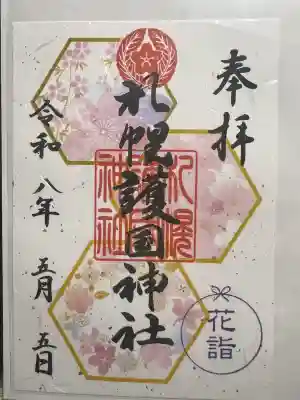 奉拝
札幌護国神社
札幌
護国
神社
令和八年五月五日
花詣